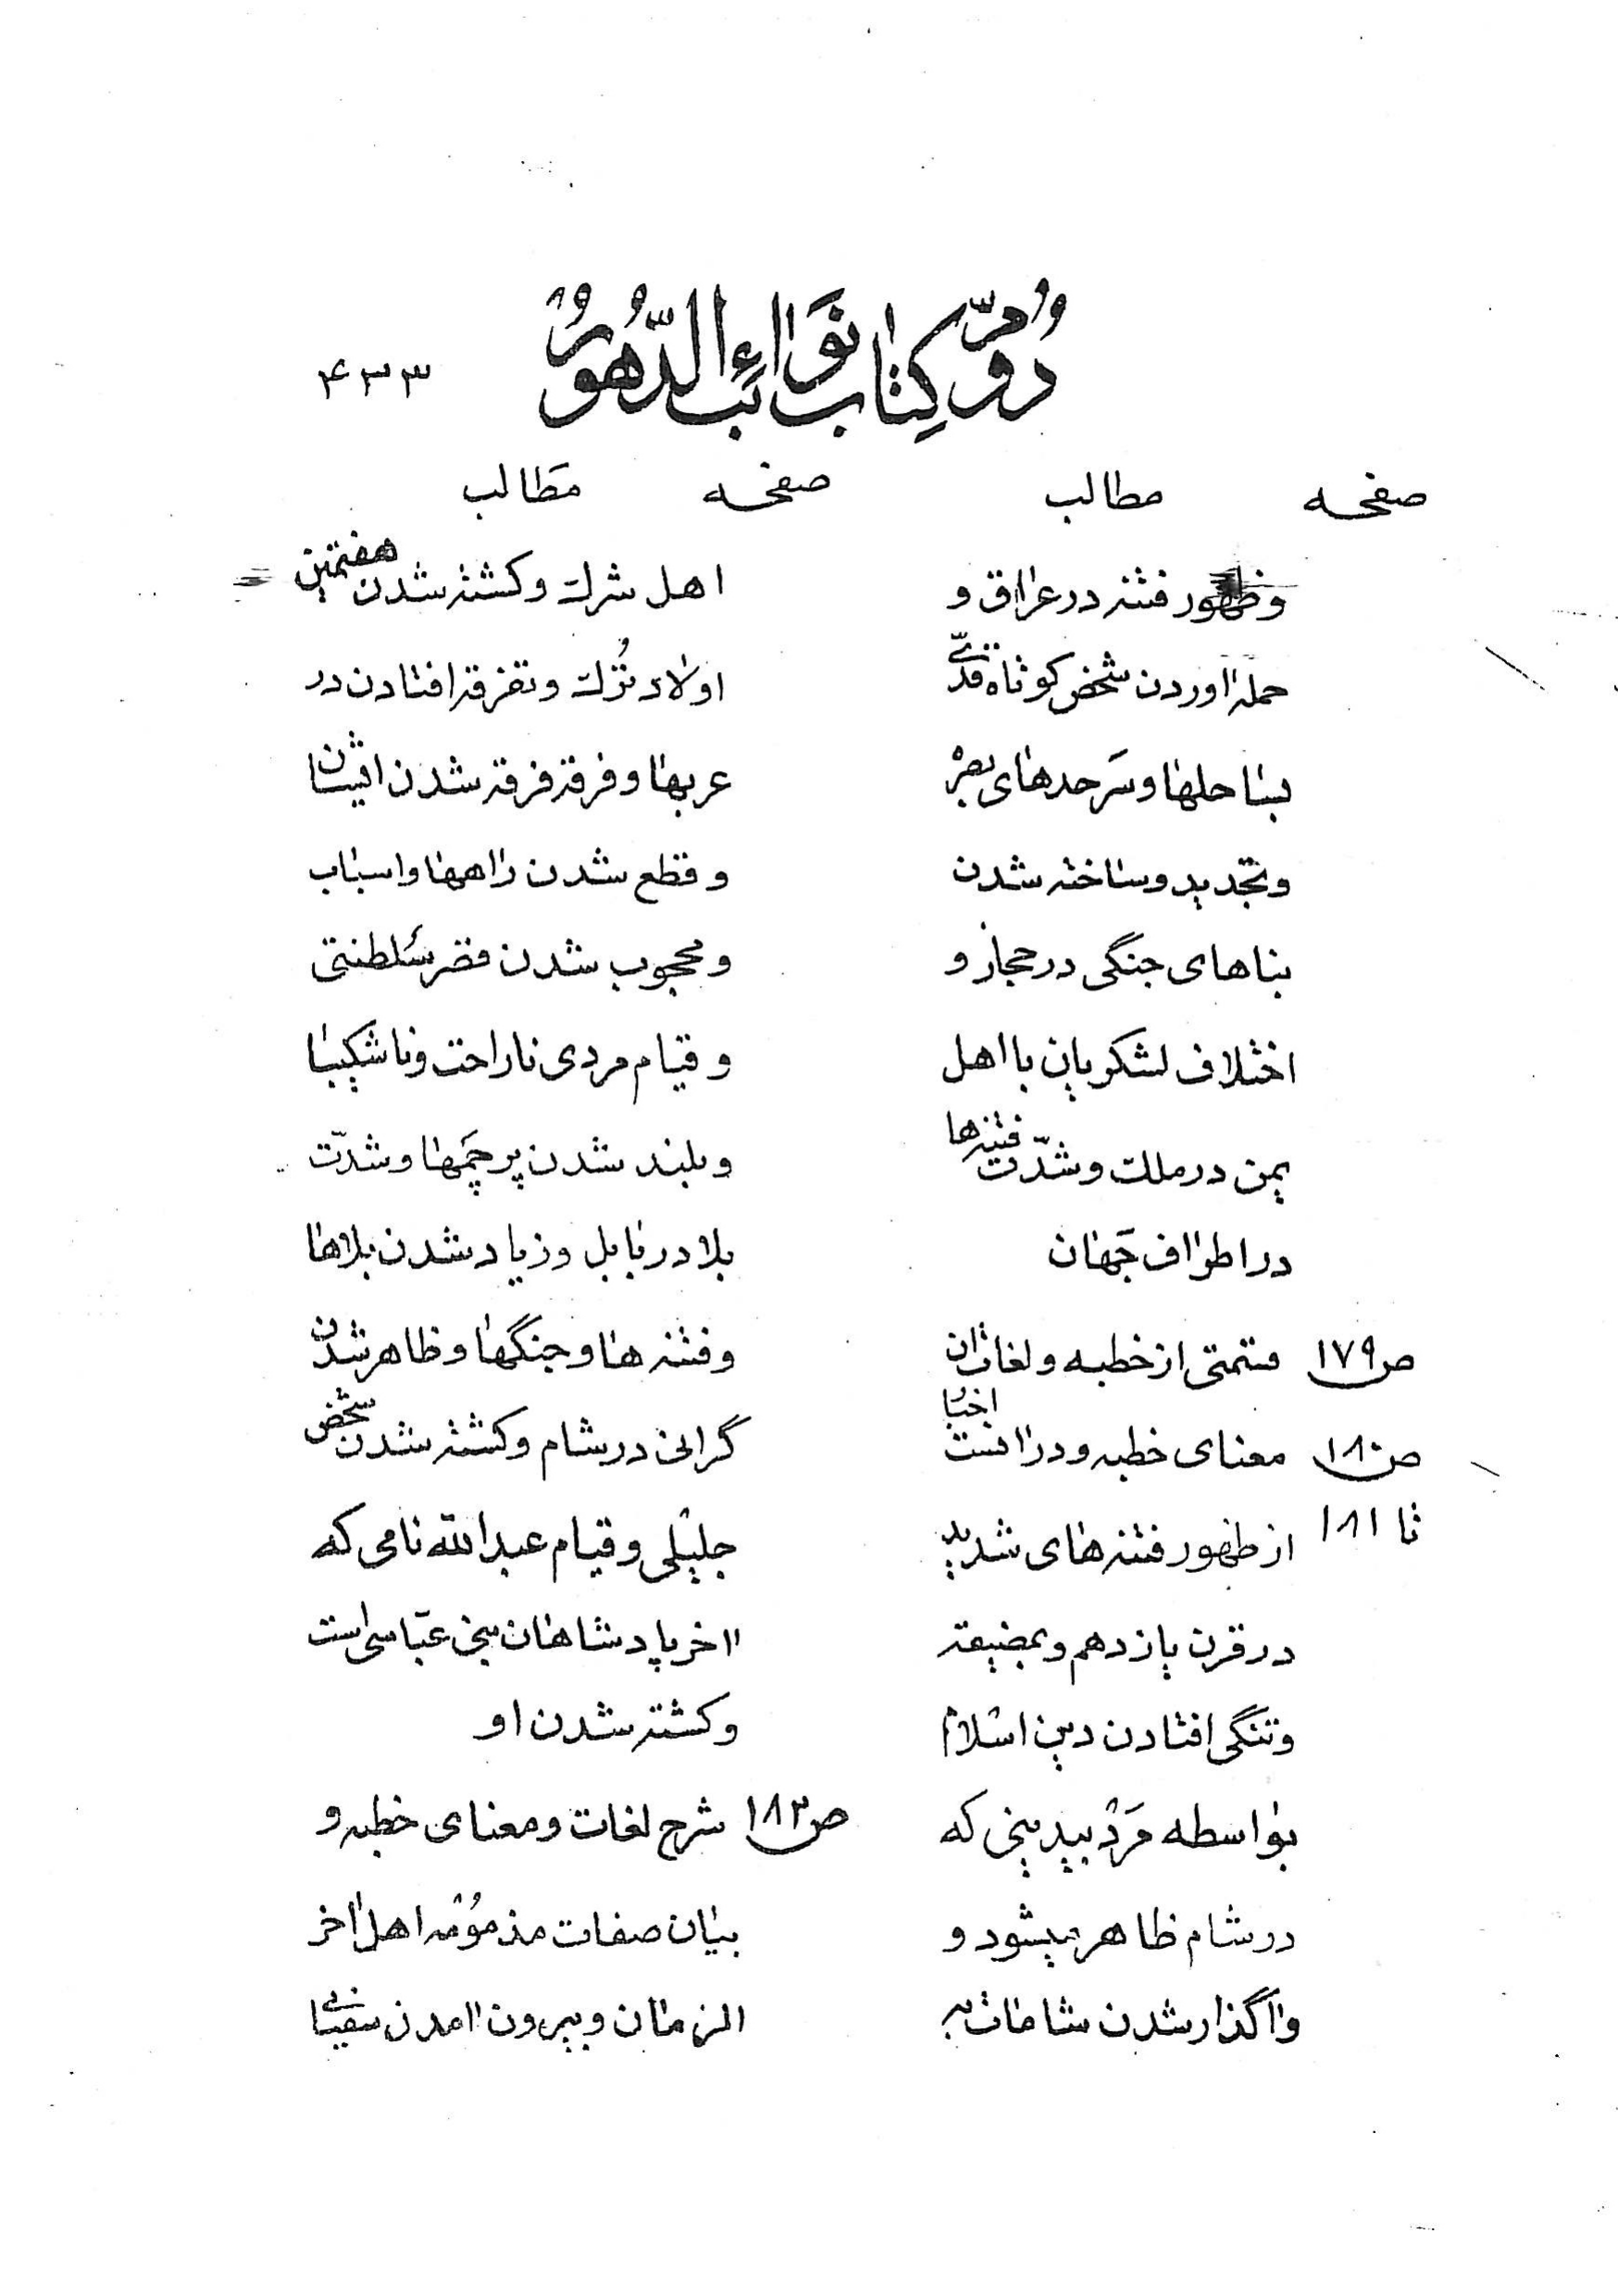 دوّم کتاب نوائب الدّهور
۴۳۳
صفحه مطالب
وظهور فتنه در عراق و
حمله اوردن شخص کوتاه قدّی
بساحلها و سَرحدهای بصره
وتجدید وساخته شدن
بناهای جنگی در حجاز و
اختلاف لشکریان با اهل
یمن در ملك وشدّت فتنه‌ها
در اطراف جَهان
ص۱۷۹ قسمتی از خطبه ولغات ان
ص۱۸۰ معنای خطبه و در انست اخبار
تا ۱۸۱ از ظهور فتنه‌های شدید
در قرن یازدهم و بمضیقه
وتنگی افتادن دین اسلام
بواسطه مَرد بیدینی که
در شام ظاهر میشود و
واگذار شدن شامات به
صفحه مَطالب
اهل شرك وکشته شدن هفتمین
اولاد تُرك وتفرقه افتادن در
عربها وفرقه فرقه شدن ایشان
وقطع شدن راهها واسباب
ومحجوب شدن قصر سَلطنتی
وقیام مردی ناراحت وناشکیبا
وبلند شدن پرچَمها وشدّت
بلا در بابل وزیاد شدن بلاها
وفتنه ها وجنگها وظاهر شدن
گرانی در شام وکشته شدن شخص
جلیلی وقیام عبدالله نامی که
اخر پادشاهان بنی عبّاسی است
وکشته شدن او
ص۱۸۳ شرح لغات ومعنای خطبه و
بیان صفات مذمومُه اهل اخر
الزمان وبیرون امدن سفیانی